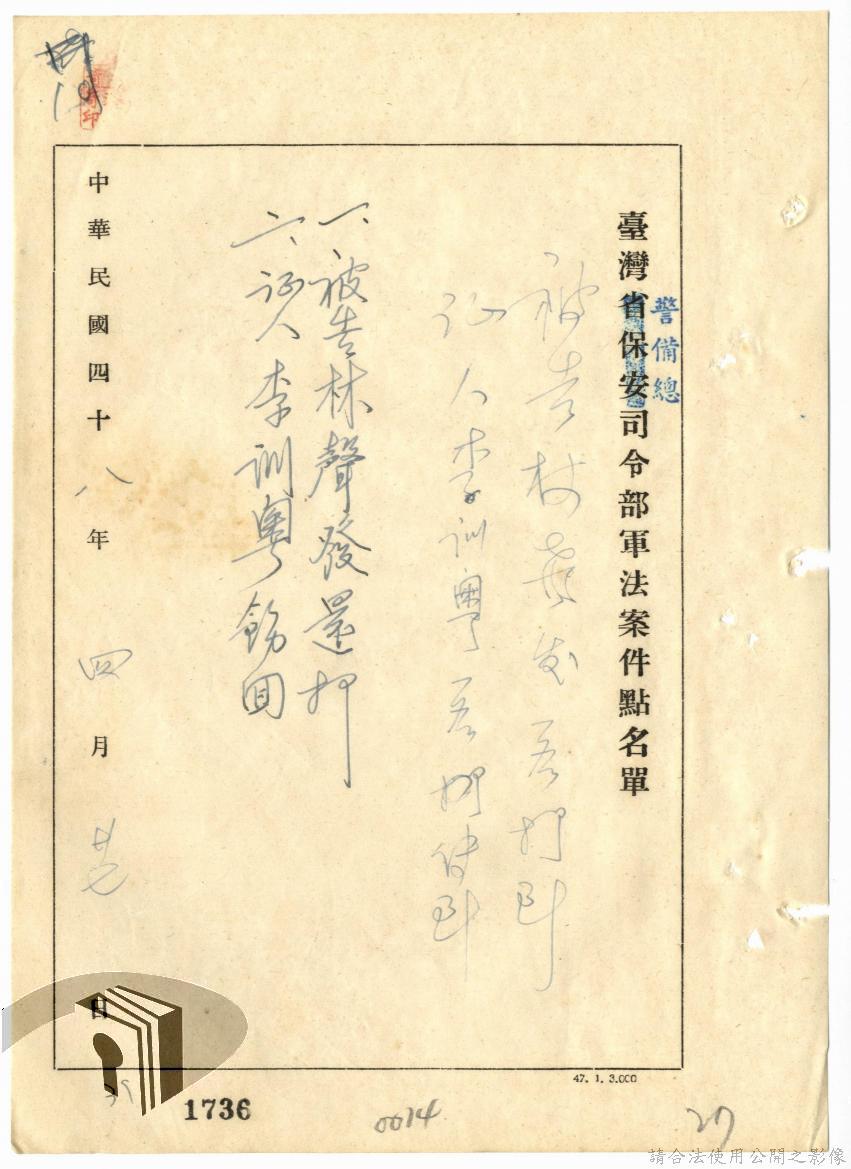 臺灣省保安司令部軍法案件點名單
警備總
被告林聲发在押到
证人李训粵在押使到
一、被告林聲發還押
二、证人李訓粵飭回
中華民國四十八年四月廿七日
47. 1. 3.000
1736
0014
27
請合法使用公開之影像